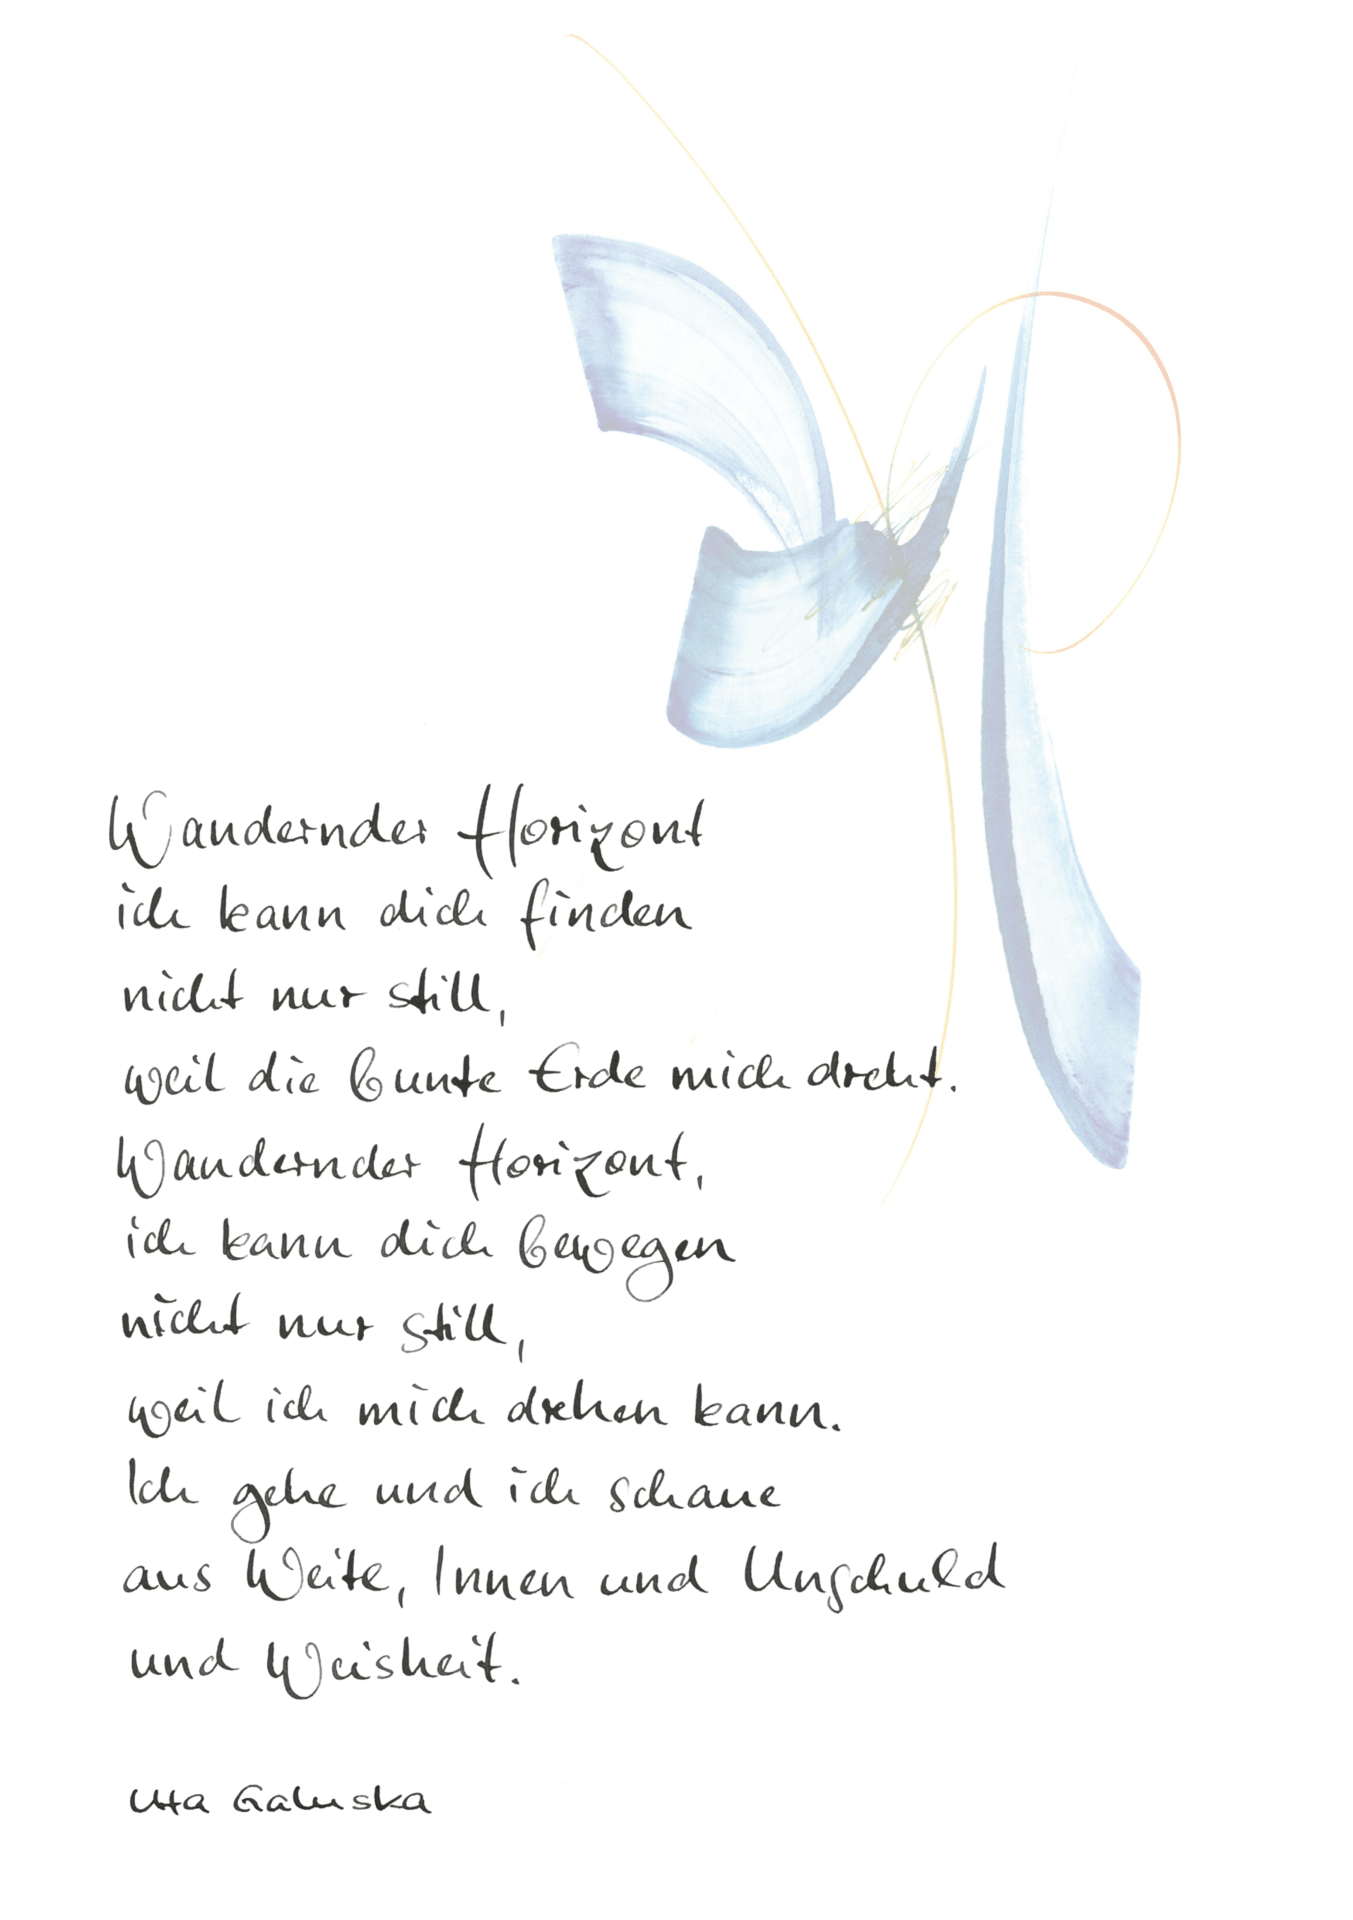 Wandernder Horizont
ich kann dich finden
nicht nur still,
weil die bunte Erde mich dreht.
Wandernder Horizont,
ich kann dich bewegen
nicht nur still,
weil ich mich drehen kann.
Ich gehe und ich schaue
aus Weite, Innen und Unschuld
und Weisheit.
Uta Galuska